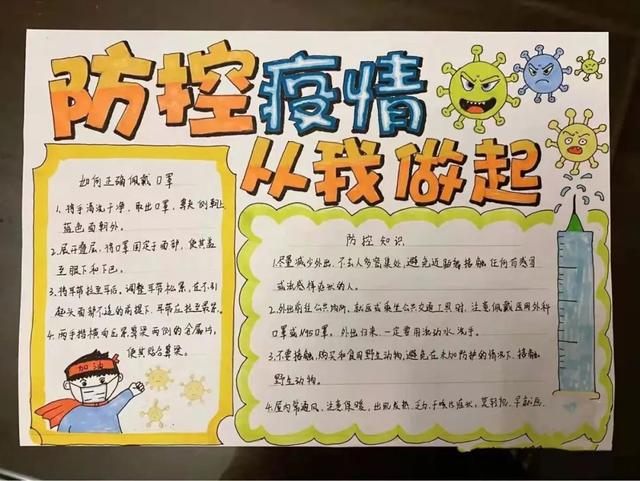 防控疫情
从我做起
如何正确佩戴口罩
1、将手清洗干净,取出口罩,鼻夹侧朝上
蓝色面朝外。
2.展开叠层,将口罩固定于面部,使其盖
至眼下和下巴。
3.将耳带拉至耳后。调整耳带松紧,在不引
起头面部不适的前提下,耳带应拉至最紧。
4.两手指横向压紧鼻梁两侧的金属片,
使其贴合鼻梁。
加油
防控知识
1.尽量减少外出,不去人多密集处,避免近距离接触任何有感冒
或流感样症状的人。
2.外出前往公共场所、就医或乘坐公共交通工具时,注意佩戴医用外科
口罩或N95口罩。外出归来,一定要用流动水洗手。
3.不要接触、购买和食用野生动物,避免在未加防护的情况下,接触
野生动物。
4.屋内常通风,注意保暖,出现发热、乏力、干咳的症状,莫轻视,早就医。